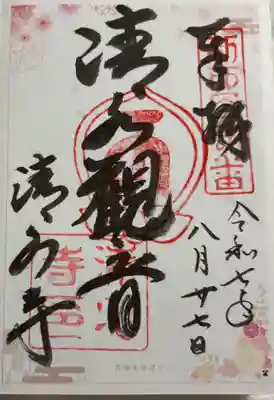 奉拝
令和七年
八月廿七日
清水觀音
清水寺